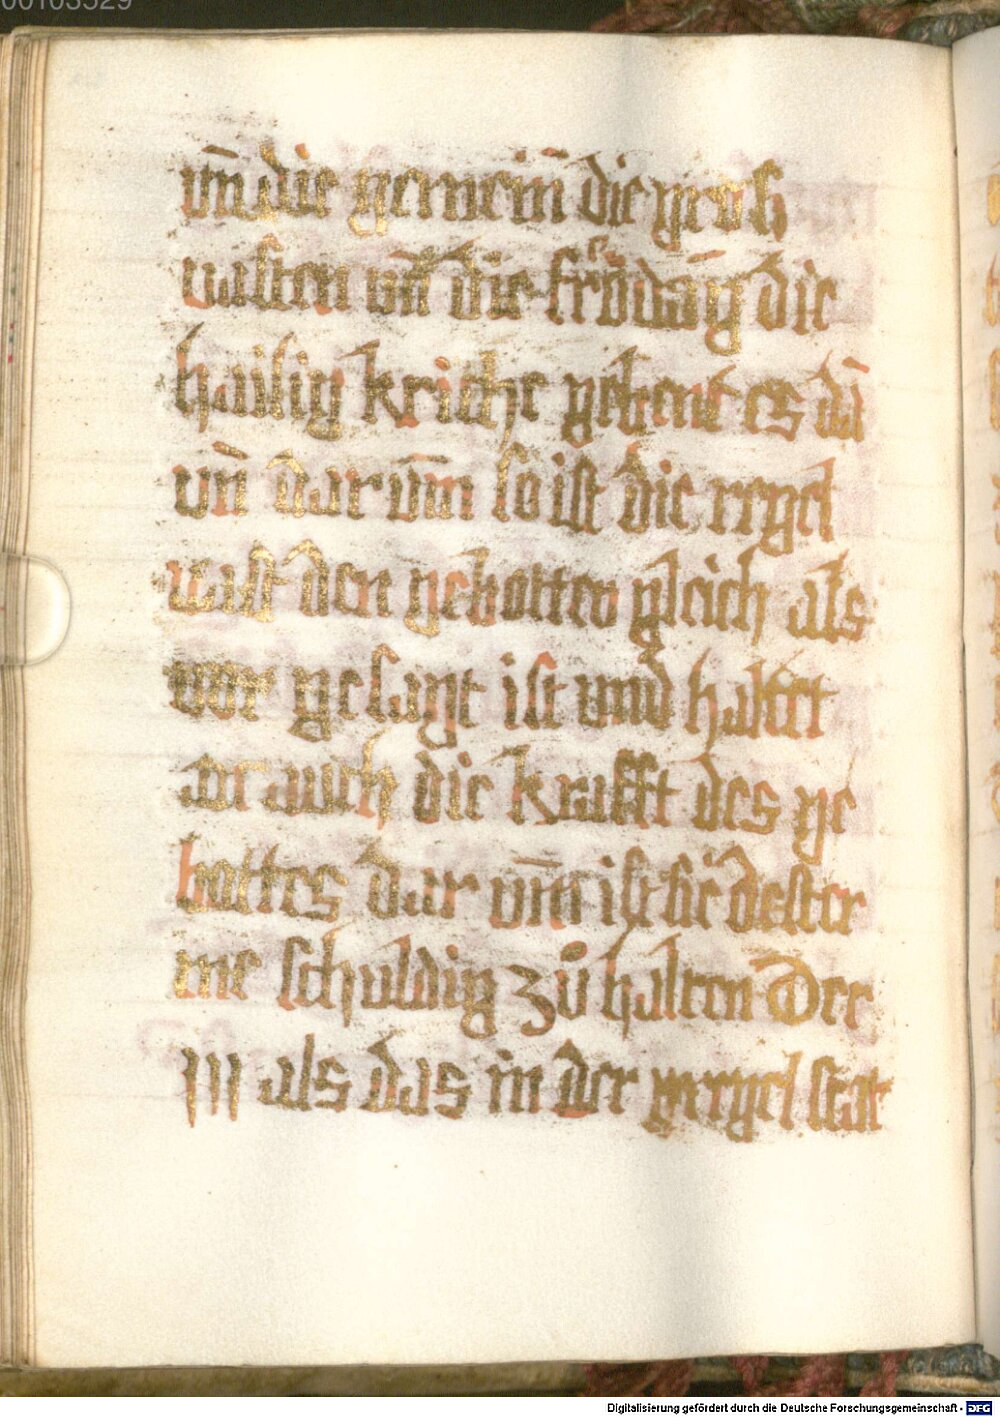 00103529
vn̄ die gemein̄ die groß
vasten vn̄ die frödāg die
hailig kriche gebent es dā
vn̄ dar vm̄ so ist die regel
vast den gebotten gleich als
vor gesagt ist vnd haltet
or auch die krafft des ge
bottes dar vm̄ ist sie dester
me schuldig zů halten Der
iii als das in der regel stat
Digitalisierung gefördert durch die Deutsche Forschungsgemeinschaft - DFG